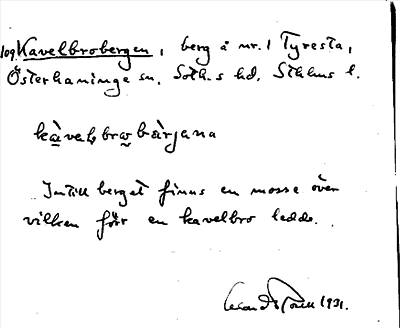 109. Kavelbrobergen, berg å nr. 1 Tyresta,
Österhaninge sn, Soth.s hd, Sthlms l.
kàvəlbrωbàrjana
Intill berget finns en mosse över
vilken förr en kavelbro ledde.
1931.